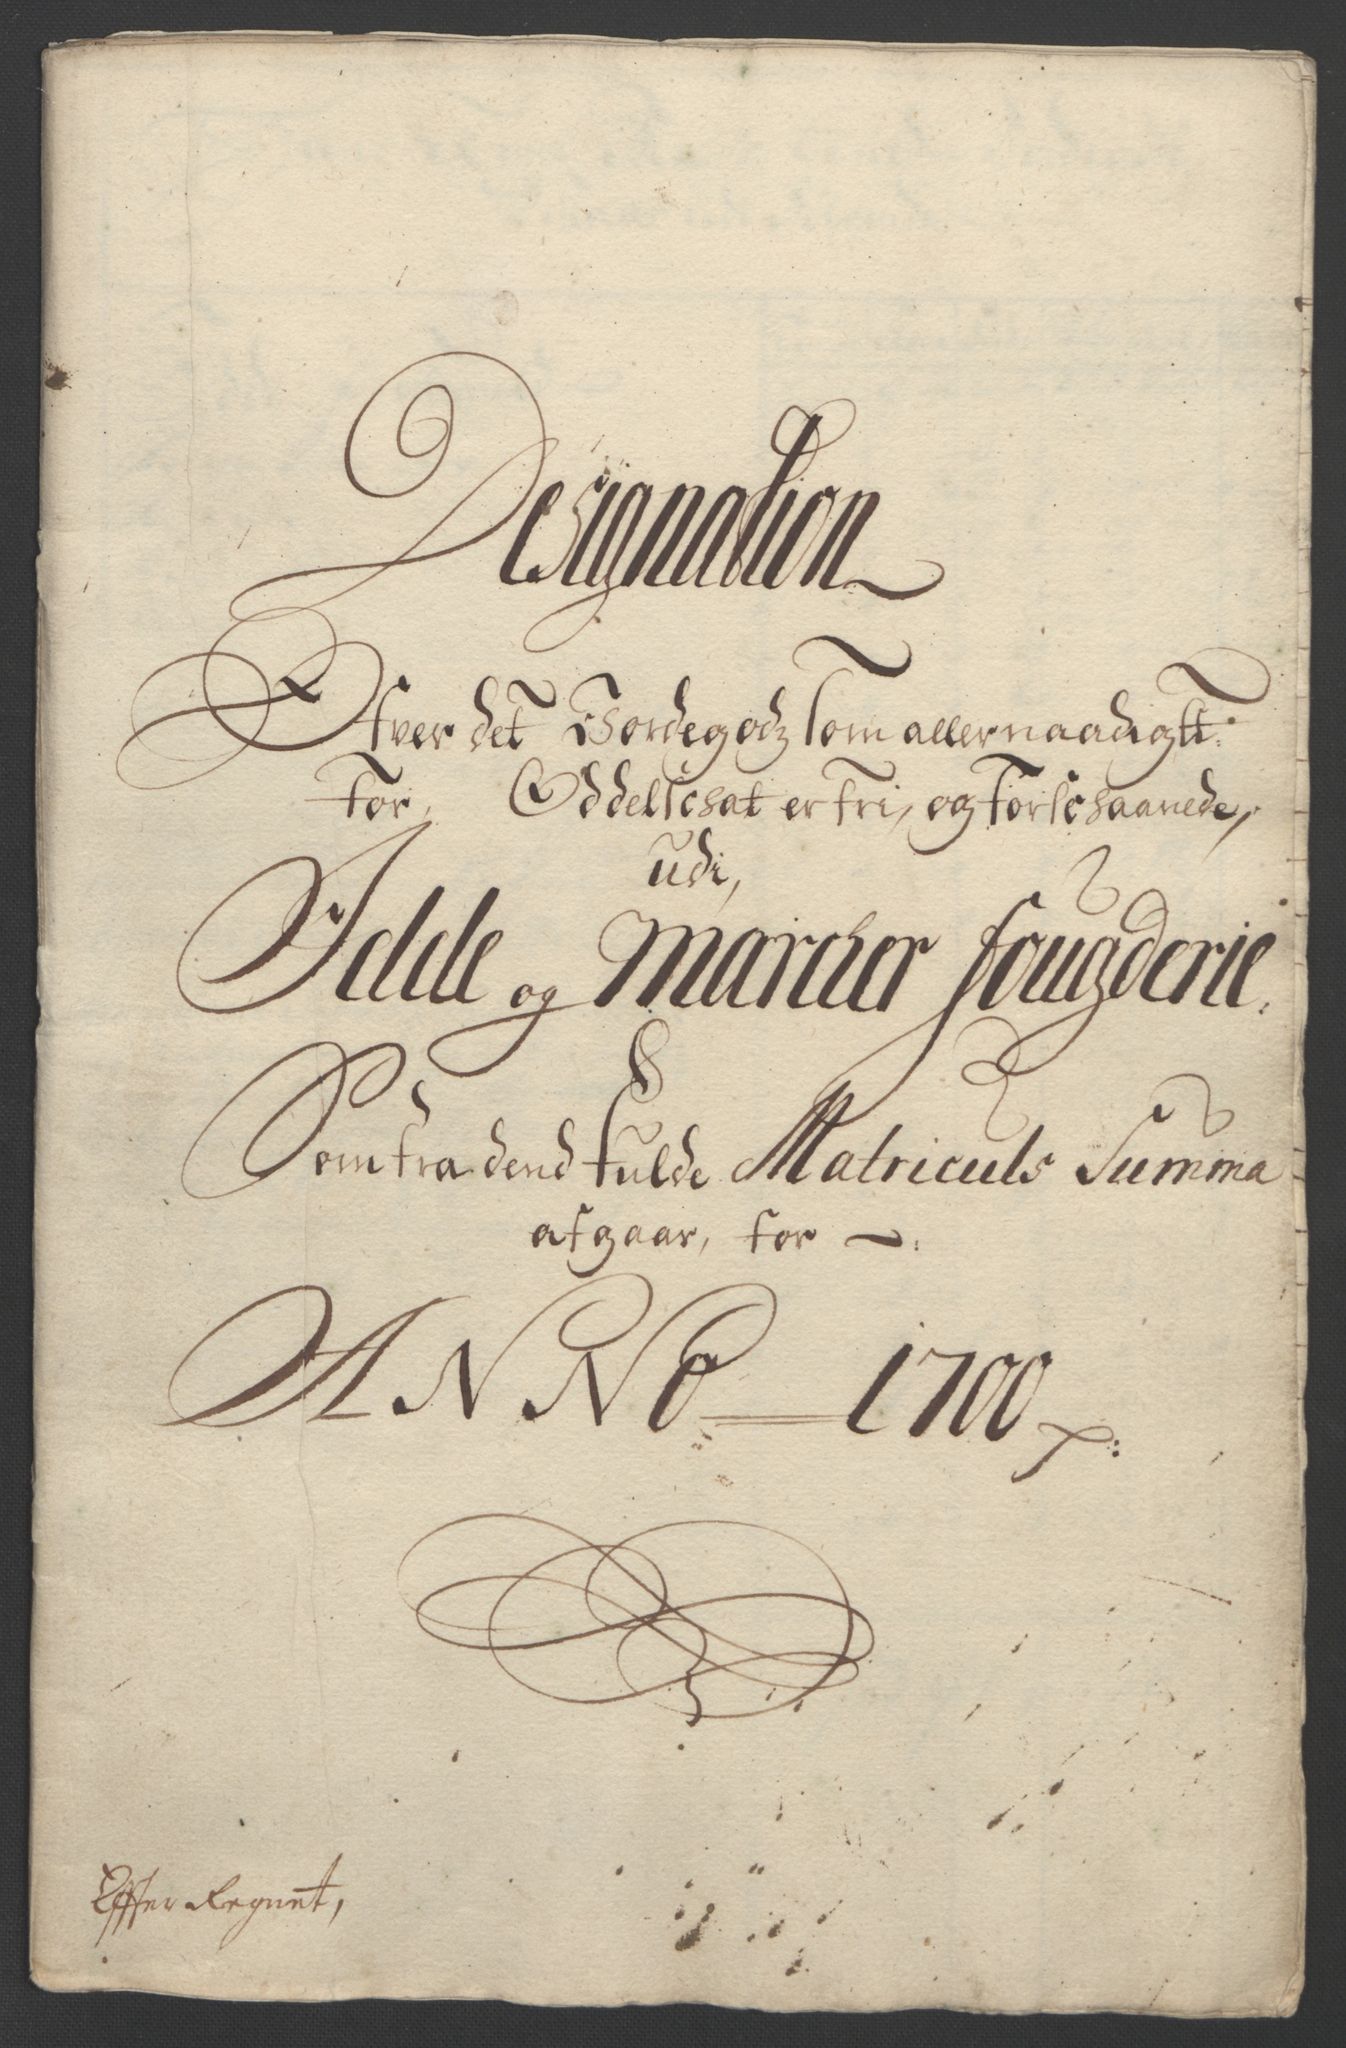 Designation
Ofver det Bordegodz som allernaadigtt:
for, Oddelschat er fri, og forschaanede,
udi,
Idde og Marcker fougderie.
Som fra dend fulde Matriculs Summa
afgaar, for
ANNO 1700
Effter Regnet,